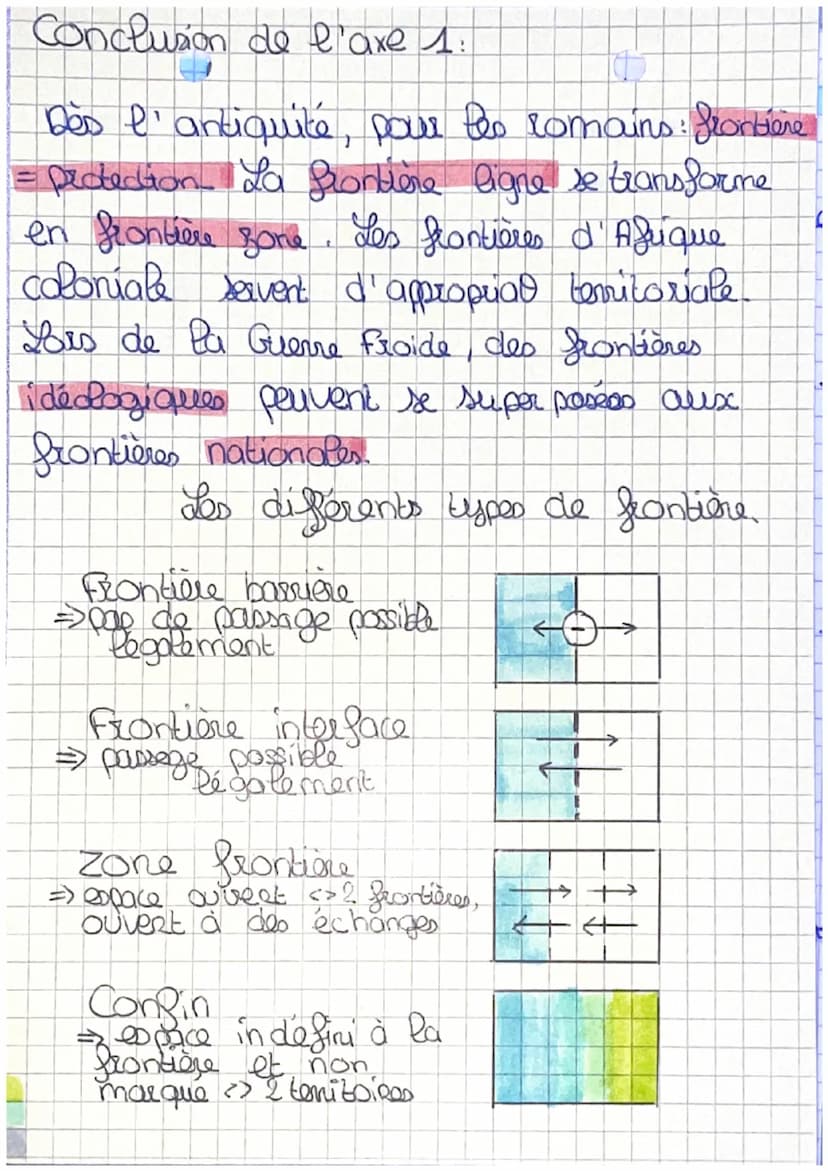 Conclusion de l'axe 1:
Dès l'antiquité, pour les romains: frontière
= protection La frontière ligne se transforme
en frontière zone. Les frontières d'Afrique
coloniale servent d'appropriat° territoriale.
Lors de la Guerre Froide, des frontières
idéologiques peuvent se super posées aux
frontières nationales.
Les différents types de frontière.
Frontière barrière
⇒ pas de passage possible
légalement
Frontière interface
⇒ passage possible
légalement
Zone frontière
⇒ espace ouvert <> 2 frontières,
ouvert à des échanges
Confin
⇒ espace indéfini à la
frontière et non
marqué <> 2 territoires